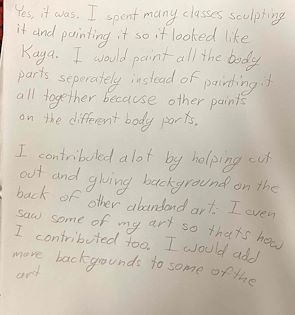 Yes, it was. I spent many classes sculpting
it and painting it so it looked like
Kaya. I would paint all the body
parts seperately instead of painting it
all together because other paints
on the different body parts.
I contributed alot by helping cut
out and gluing background on the
back of other abandond art. I even
saw some of my art so thats how
I contributed too. I would add
more backgrounds to some of the
art